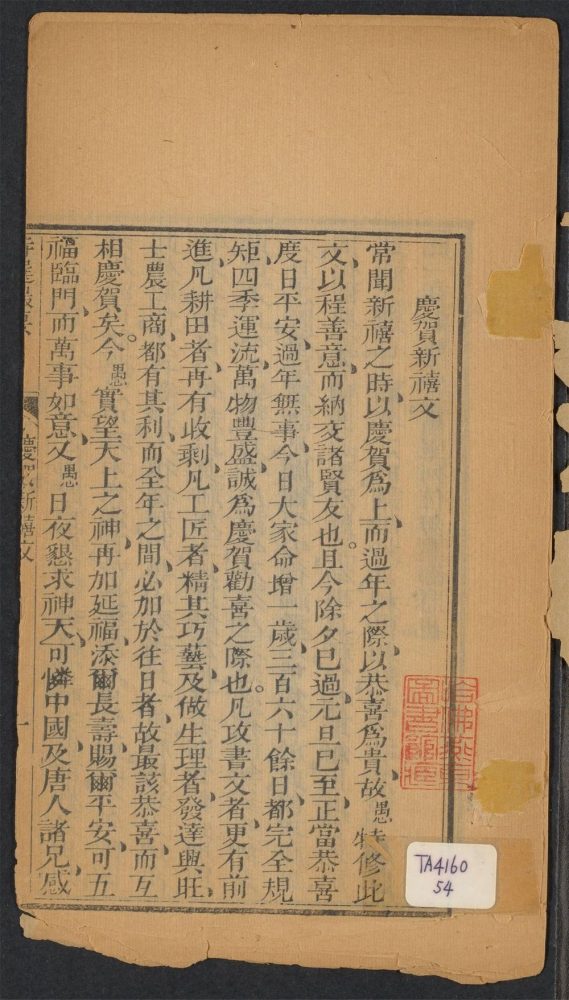 慶賀新禧文
常聞新禧之時、以慶賀爲上、而過年之際、以恭喜爲貴、故愚特修此
文、以程善意、而納交諸賢友也。且今除夕已過、元旦已至、正當恭喜
度日平安、過年無事、今日大家命增一歲、三百六十餘日、都完全規
矩、四季運流、萬物豐盛、誠爲慶賀勸喜之際也。凡攻書文者、更有前
進、凡耕田者、再有收剩、凡工匠者、精其巧藝、及做生理者、發達興旺、
士農工商、都有其利、而全年之間、必加於往日者、故最該恭喜、而互
相慶賀矣。今愚實望天上之神、再加延福、添爾長壽、賜爾平安、可五
福臨門、而萬事如意、又愚日夜懇求神天、可憐中國、及唐人諸兄、感
慶賀新禧文
一
哈佛燕京
圖書館
TA4160
54